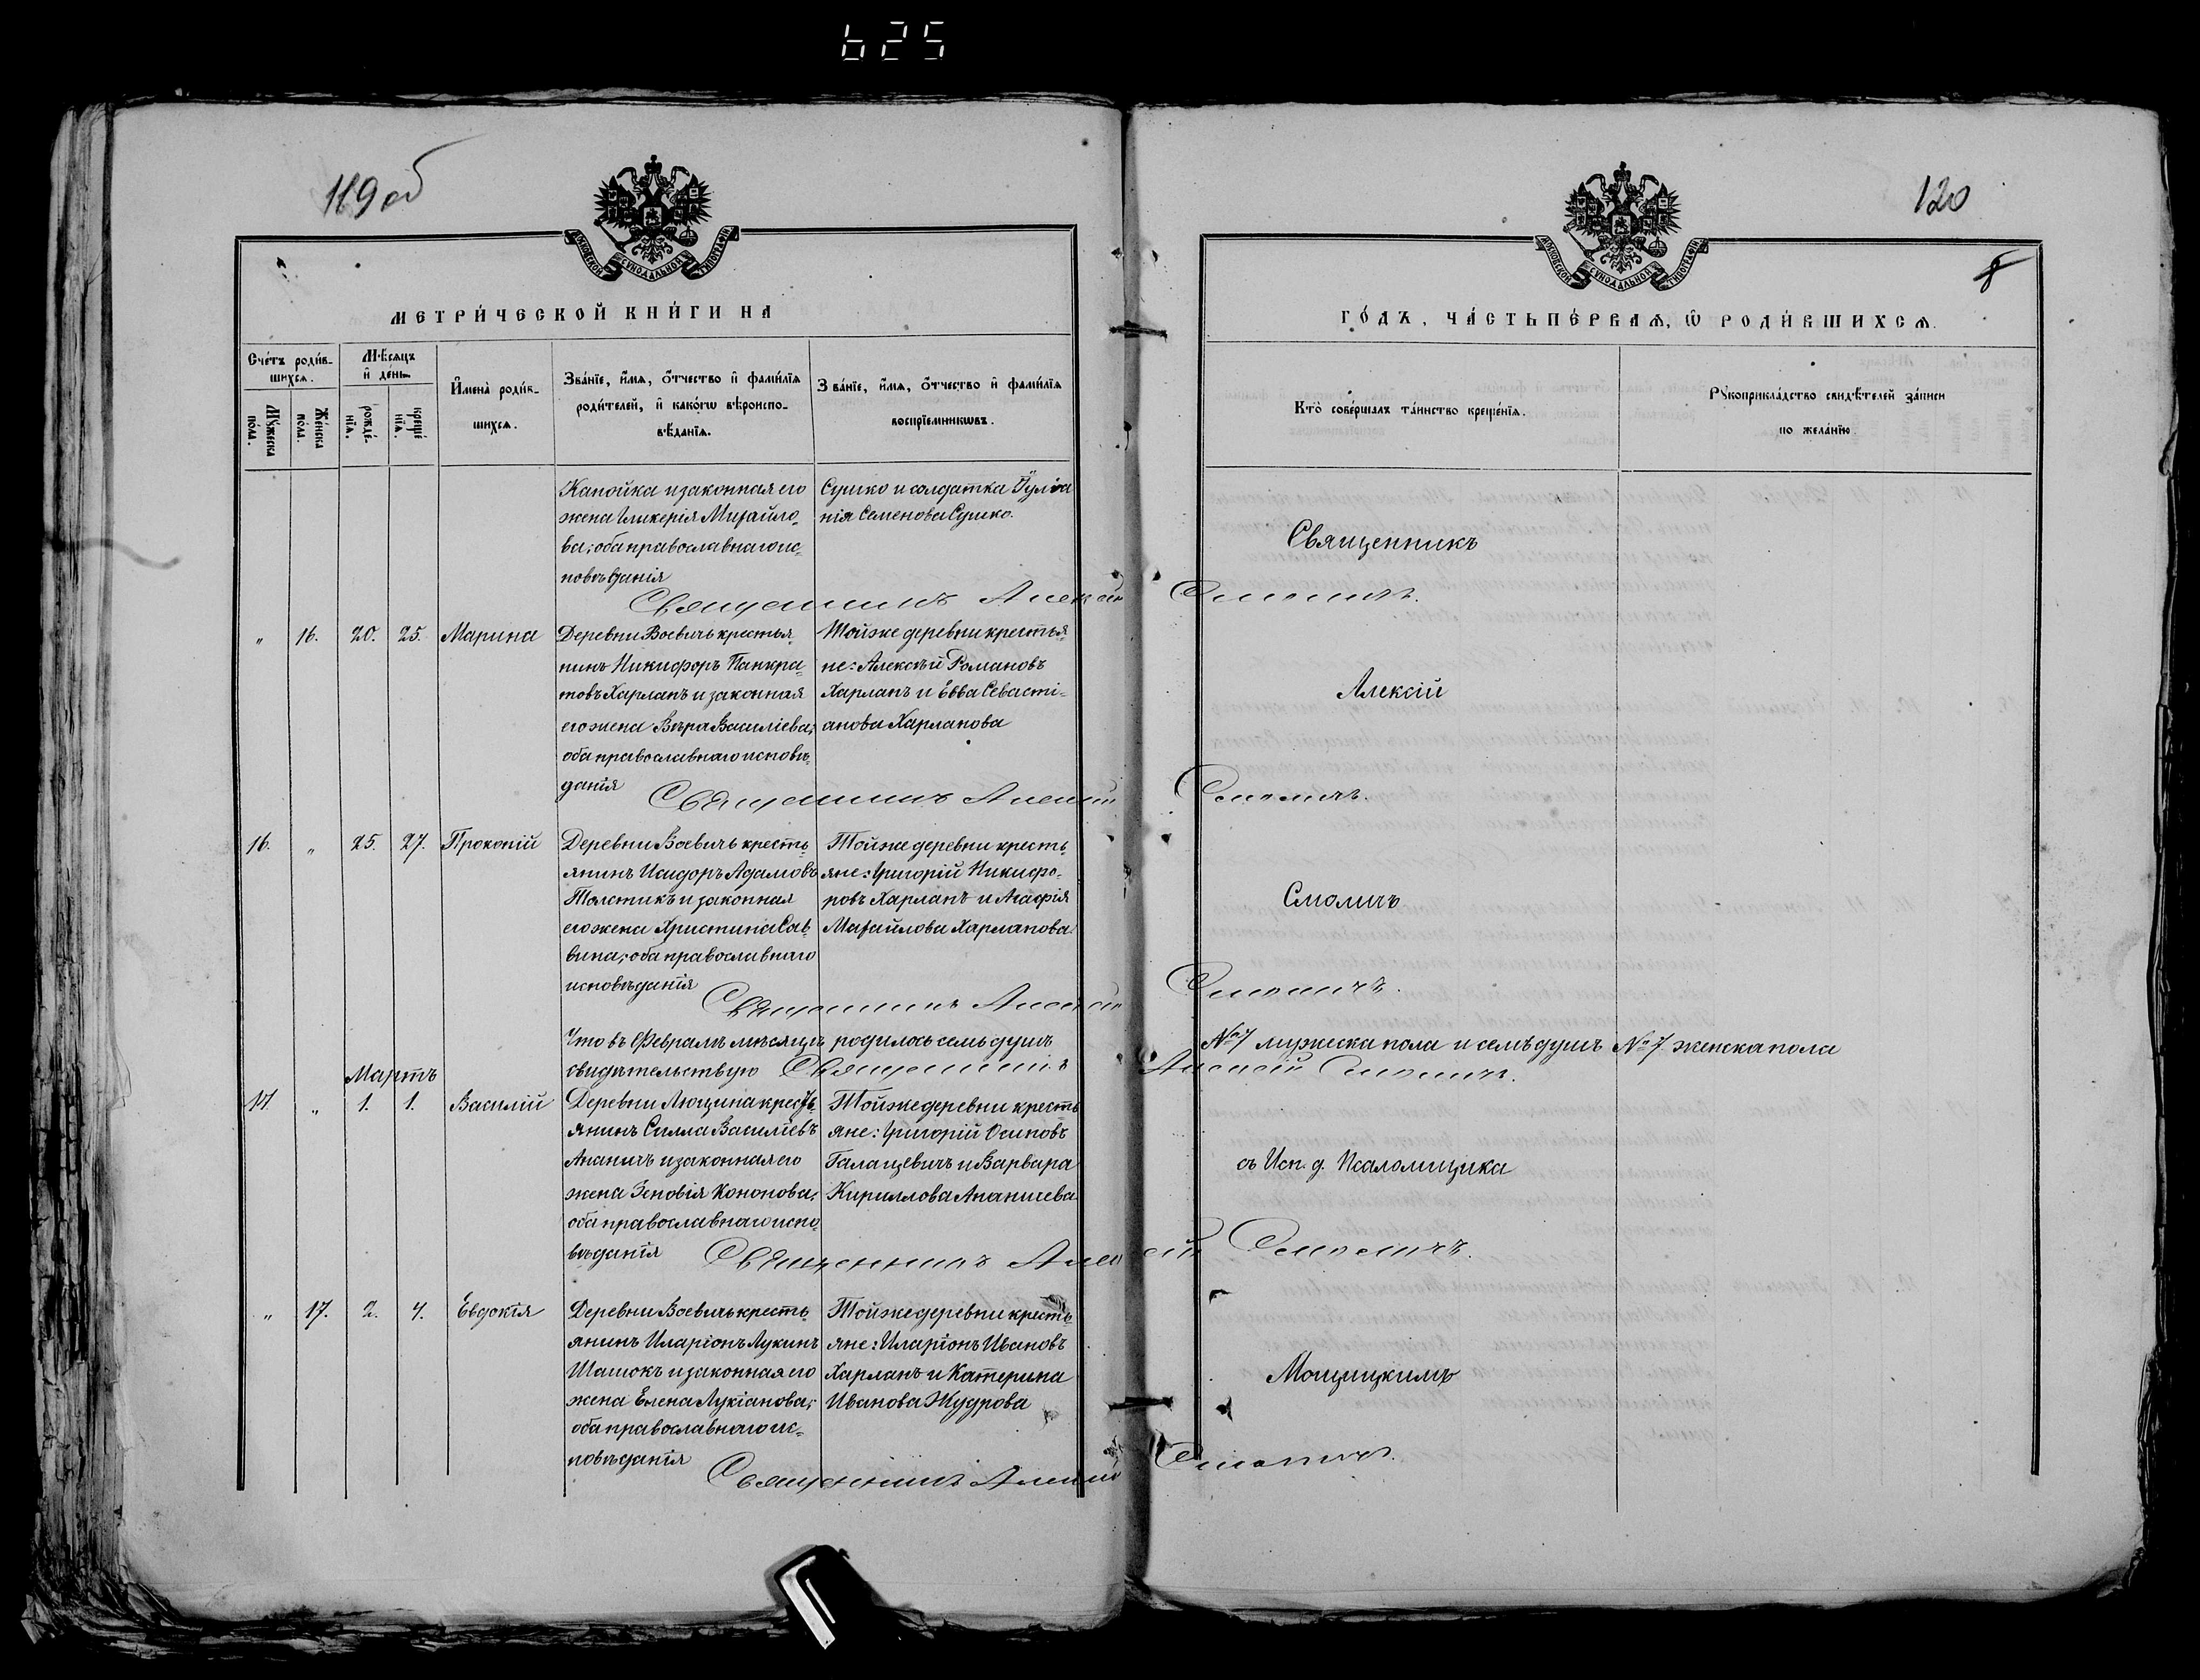 625
119 об
120
8
МОСКОВСКОЙ СУНОДАЛЬНОЙ ТИПОГРАФІИ
МОСКОВСКОЙ СУНОДАЛЬНОЙ ТИПОГРАФІИ
МЕТРИ́ЧЕСКОЙ КНИ́ГИ НА
ГО́ДЪ, ЧА́СТЬ ПЕ́РВАЯ, Ѡ РОДИ́ВШИХСЯ.
Сче́тъ роди́в-
шихся.
Мѣ́сяцъ
и҆ де́нь.
Мꙋ́жеска
по́ла.
Же́нска
по́ла.
рожде́-
нїя.
креще́
нїя.
И҆мена̀ роди́в-
шихся.
Зва́нїе, и҆́мя, ѻ҆́тчество и҆ фами́лїя
роди́телей, и҆ како́гѡ вѣроиспо-
вѣ́данїя.
Зва́нїе, и҆́мя, ѻ҆́тчество и҆ фами́лїя
воспрїе́мникѡвъ.
Кто̀ соверша́лъ та́инство креще́нїя.
Рꙋкоприкла́дство свидѣ́телей за́писи
по жела́нїю.
Капойка и законная его
жена Гликерія Михайло-
ва; оба православнаго ис-
повѣданія
Сушко и солдатка Іуліа
нія Семенова Сушко.
Священникъ
Священникъ Алексій Смоличъ.
" 16. 20. 25. Марина
Деревни Воевичъ крестья-
нинъ Никифоръ Панкра-
товъ Харланъ и законная
его жена Вѣра Василіева;
оба православнаго исповѣ-
данія
Тойже деревни крестья-
не: Алексѣй Романовъ
Харланъ и Евва Севасті-
анова Харланова
Алексій
Священникъ Алексій Смоличъ.
16. " 25. 27. Прокопій
Деревни Воевичъ кресть-
янинъ Исидоръ Адамовъ
Толстикъ и законная
его жена Христина Сав-
вина; оба православнаго
исповѣданія
Тойже деревни кресть-
яне: Григорій Никифо-
ровъ Харланъ и Агафія
Михайлова Харланова.
Смоличъ
Священникъ Алексій Смоличъ.
Что въ Февралѣ мѣсяцѣ родилось семь душъ № 7 мужеска пола и семь душъ № 7. женска пола
свидѣтельствую Священникъ Алексій Смоличъ.
Мартъ
17. " 1. 1. Василій
Деревни Лющина кресть-
янинъ Силла Василіевъ
Ананичъ и законная его
жена Зеновія Кононова;
оба православнаго испо-
вѣданія
Тойже деревни кресть
яне: Григорій Осиповъ
Галацевичъ и Варвара
Кириллова Ананичева
съ Исп. д. Псаломщика
Священникъ Алексій Смоличъ.
" 17. 2. 4. Евдокія
Деревни Воевичъ кресть-
янинъ Иларіонъ Лукинъ
Шашокъ и законная его
жена Елена Лукіанова;
оба православнаго ис-
повѣданія
Тойже деревни кресть-
яне: Иларіонъ Ивановъ
Харланъ и Катерина
Иванова Жудрова
Мощицкимъ
Священникъ Алексій Смоличъ.